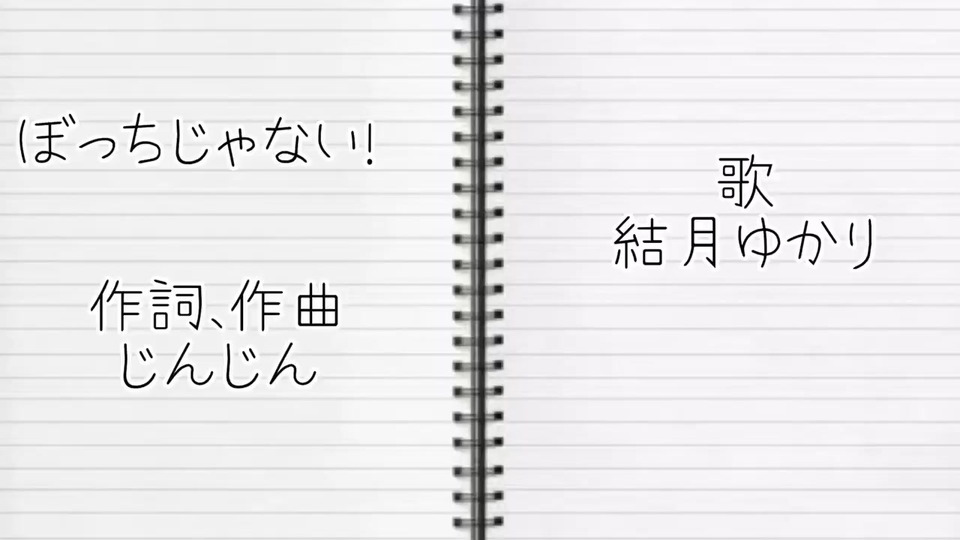 ぼっちじゃない!
作詞、作曲
じんじん
歌
結月ゆかり